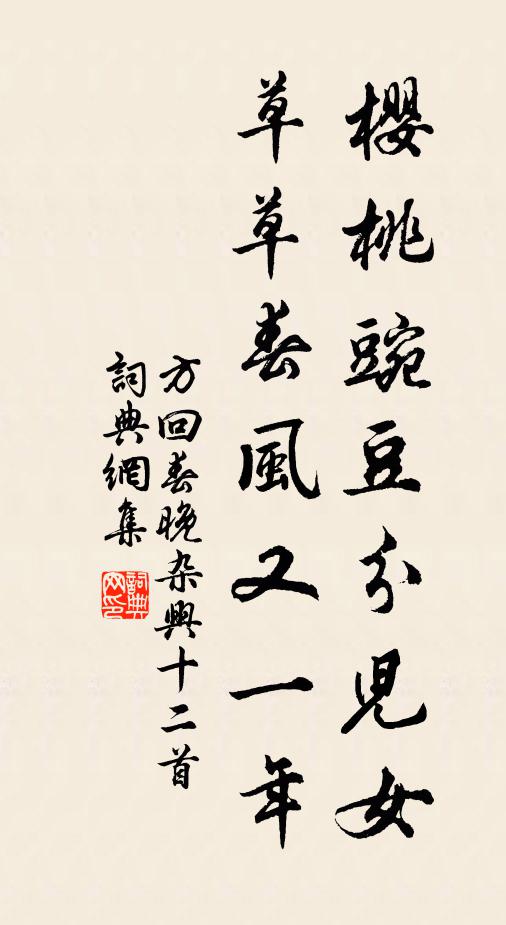 櫻桃豌豆分兒女
草草春風又一年
方回春晚杂興十二首
詞典網集
詞典网印